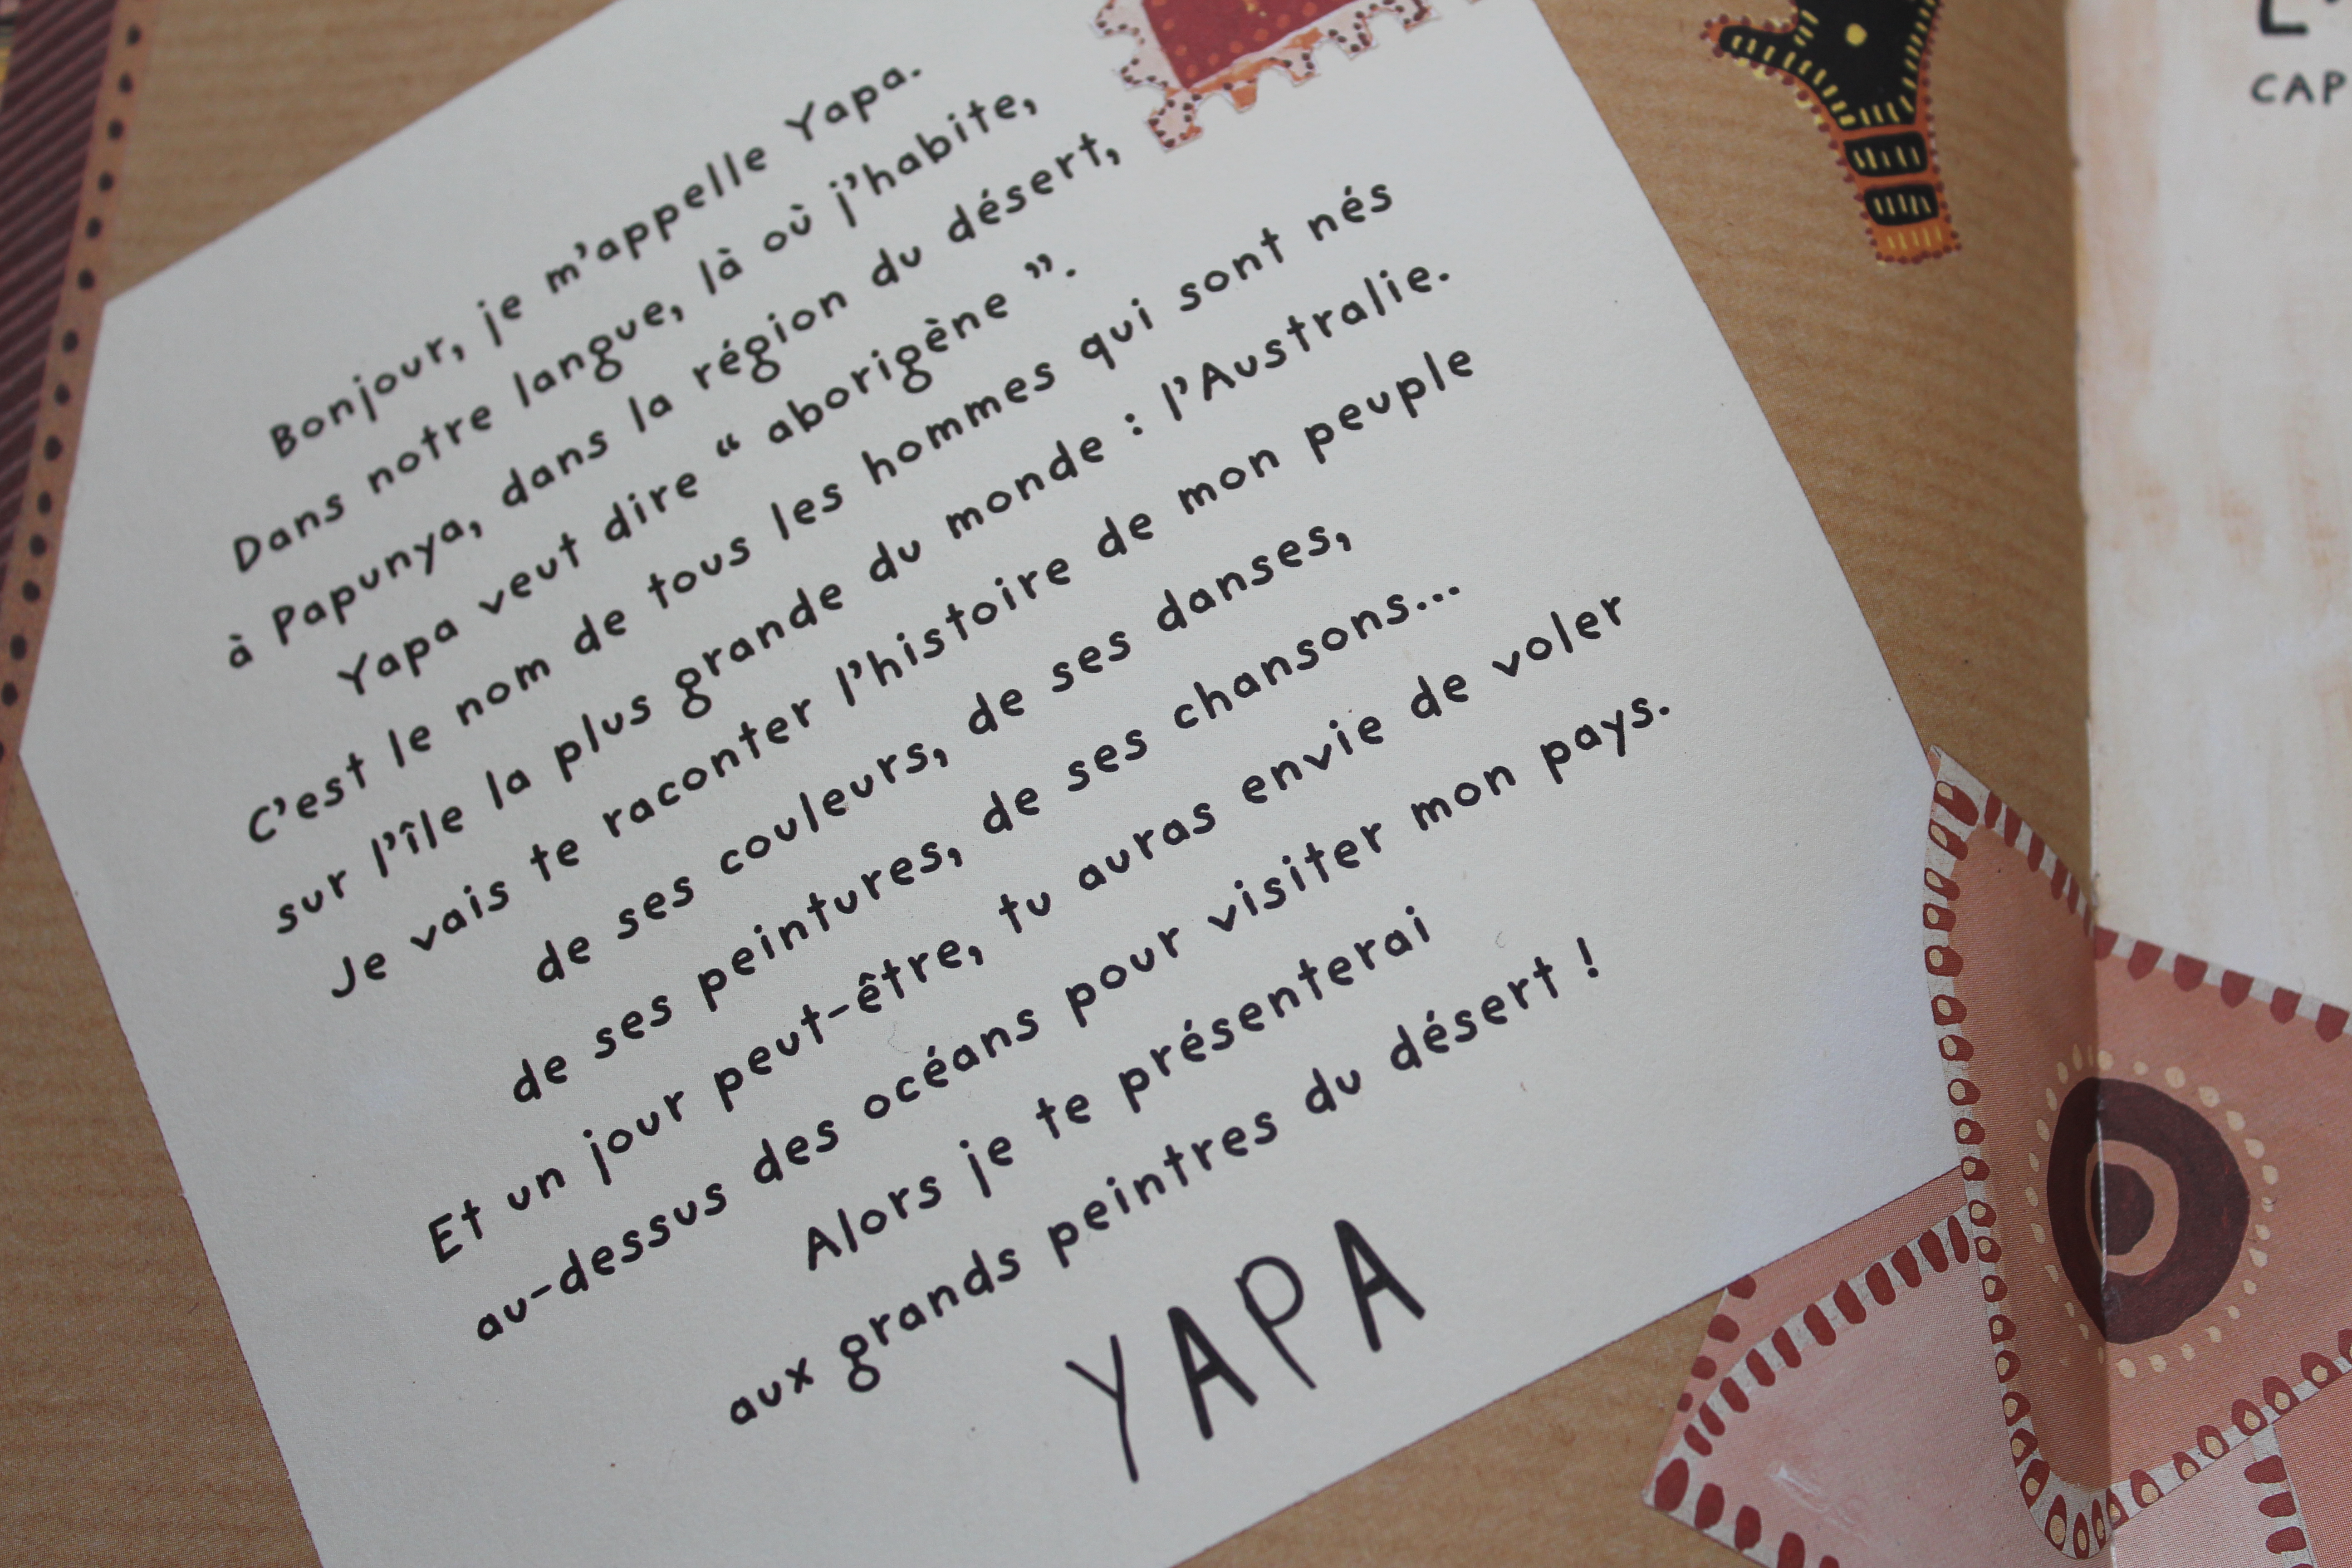 Bonjour, je m'appelle Yapa.
Dans notre langue, là où j'habite,
à Papunya, dans la région du désert,
Yapa veut dire “ aborigène ”.
C'est le nom de tous les hommes qui sont nés
sur l'île la plus grande du monde : l'Australie.
Je vais te raconter l'histoire de mon peuple
de ses couleurs, de ses danses,
de ses peintures, de ses chansons...
Et un jour peut-être, tu auras envie de voler
au-dessus des océans pour visiter mon pays.
Alors je te présenterai
aux grands peintres du désert !
YAPA